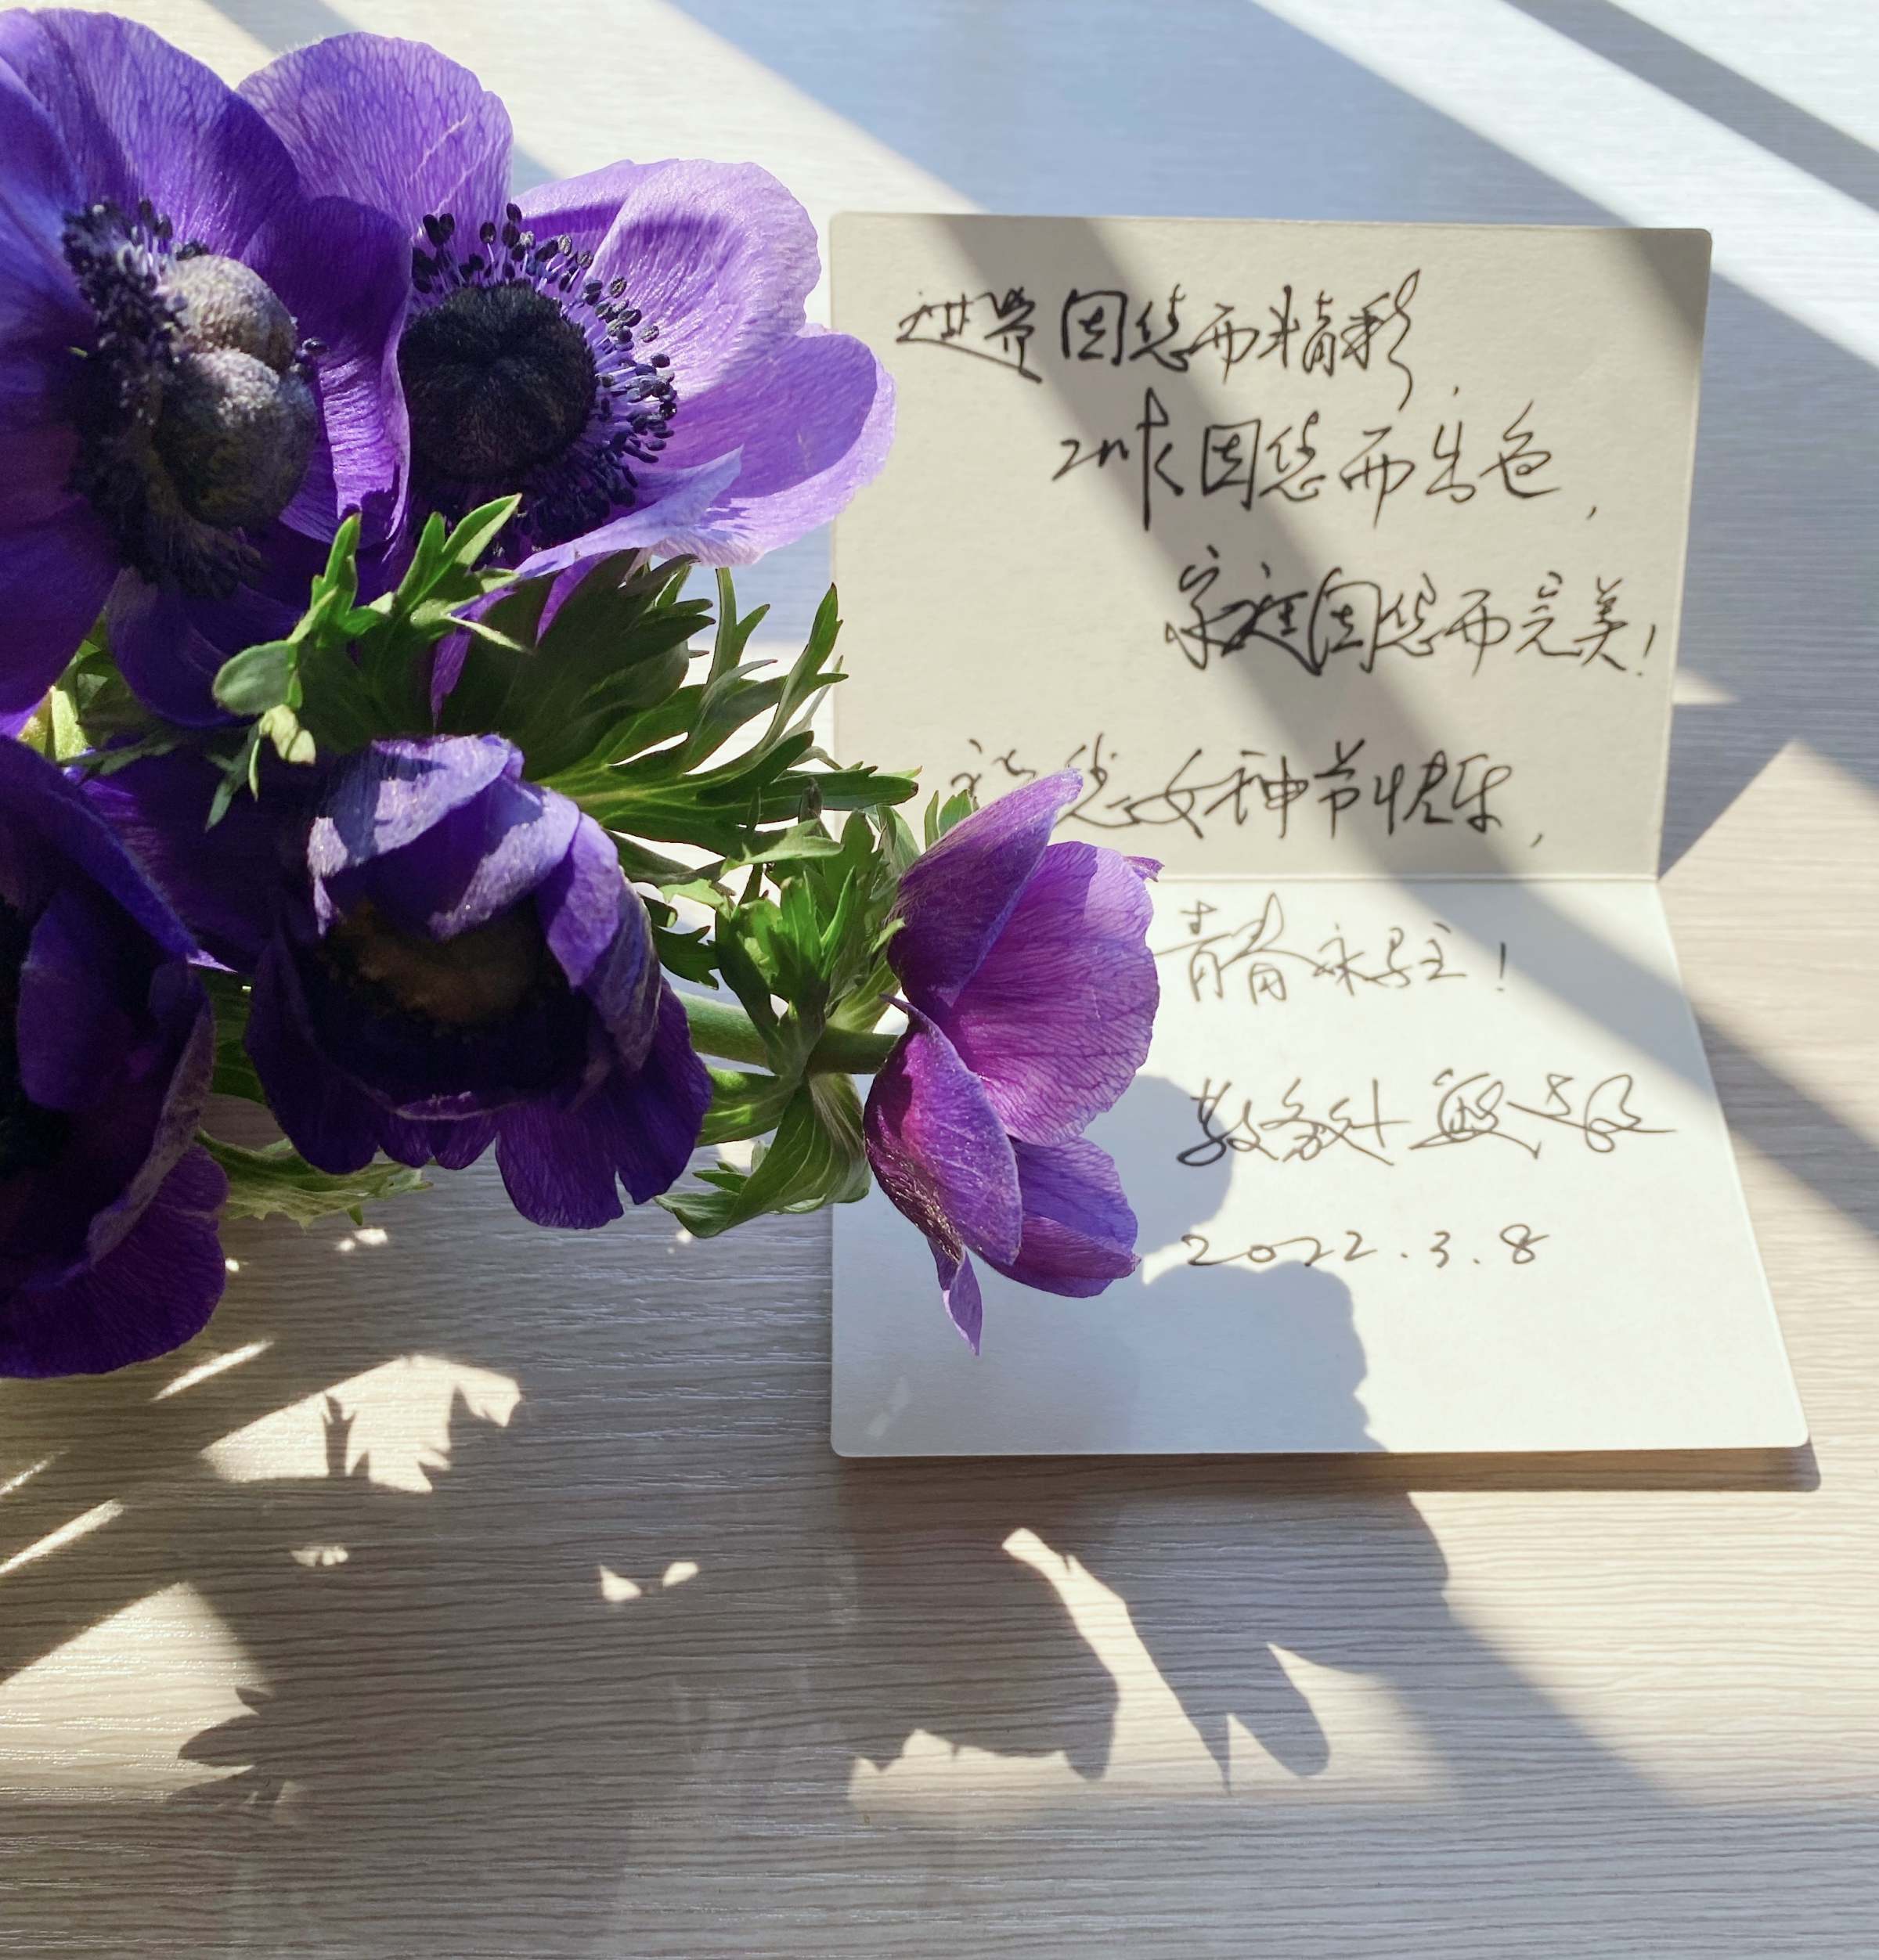 世界因您而精彩,
因您而出色,
家庭因您而完美!
祝您女神节快乐,
青春永驻!
2022.3.8